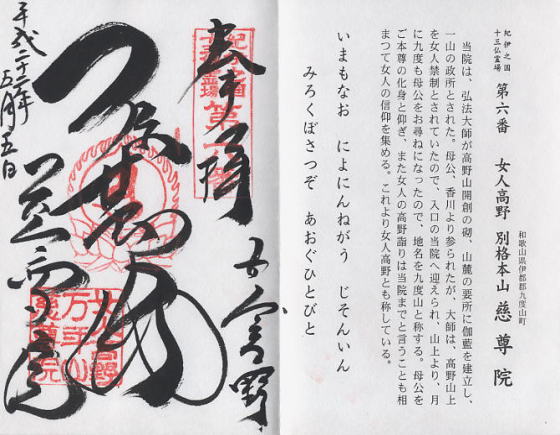 和歌山県伊都郡九度山町
紀伊之国
十三仏霊場
第六番 女人高野 別格本山 慈尊院
当院は、弘法大師が高野山開創の砌、山麓の要所に伽藍を建立し、
一山の政所とされた。母公、香川より参られたが、大師は、高野山上
を女人禁制とされていたので、入口の当院へ迎えられ、山上より、月
に九度も母公をお尋ねになったので、地名を九度山と称する。母公を
ご本尊の化身と仰ぎ、また女人の高野詣りは当院までと言うことも相
まつて女人の信仰を集める。これより女人高野とも称している。
いまもなお によにんねがう じそんいん
みろくぼさつぞ あおぐひとびと
女人高野
奉拝
紀伊之国
十三仏霊場
第六番
慈尊院
平成二十二年
五月五日